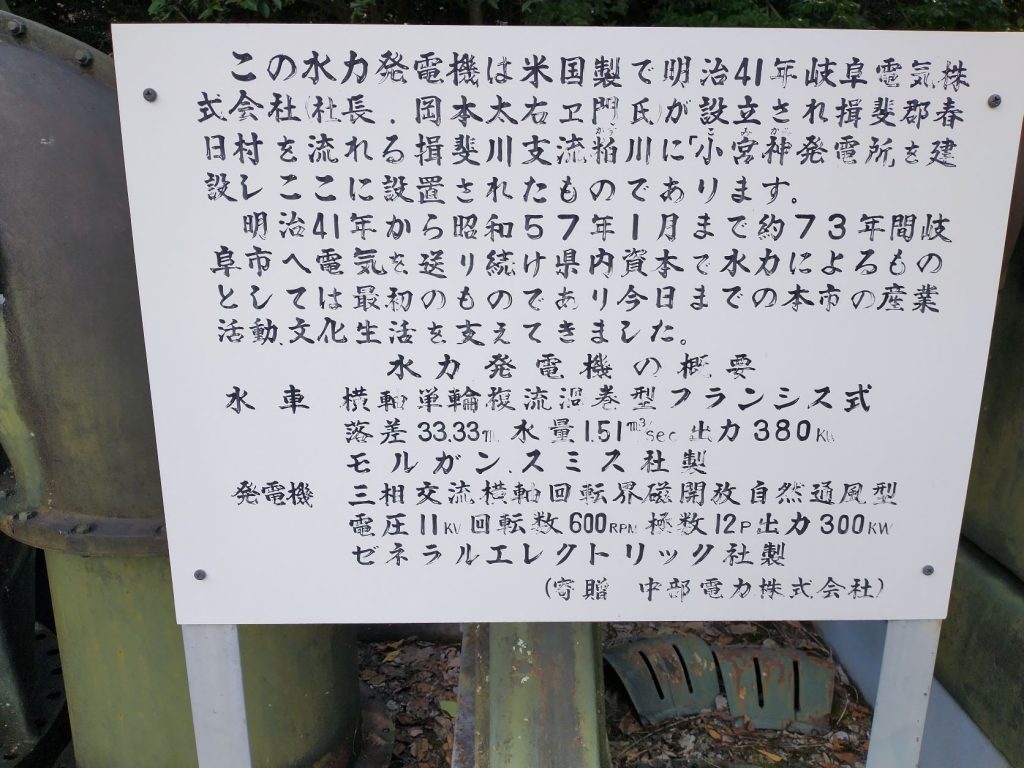 この水力発電機は米国製で明治41年岐阜電気株
式会社(社長.岡本太右ヱ門氏)が設立され揖斐郡春
日村を流れる揖斐川支流粕川に「小宮神発電所を建
設しここに設置されたものであります。
明治41年から昭和57年1月まで約73年間岐
阜市へ電気を送り続け県内資本で水力によるもの
としては最初のものであり今日までの本市の産業
活動、文化生活を支えてきました。
水力発電機の概要
水車 横軸単輪複流渦巻型フランシス式
落差33.33m 水量1.51m³/sec 出力380KW
モルガン、スミス社製
発電機 三相交流横軸回転界磁開放自然通風型
電圧11KV 回転数600RPM 極数12P 出力300KW
ゼネラルエレクトリック社製
(寄贈 中部電力株式会社)